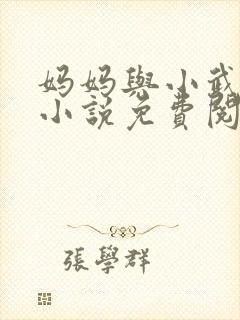 妈妈與小武
小說免費閱
張學群